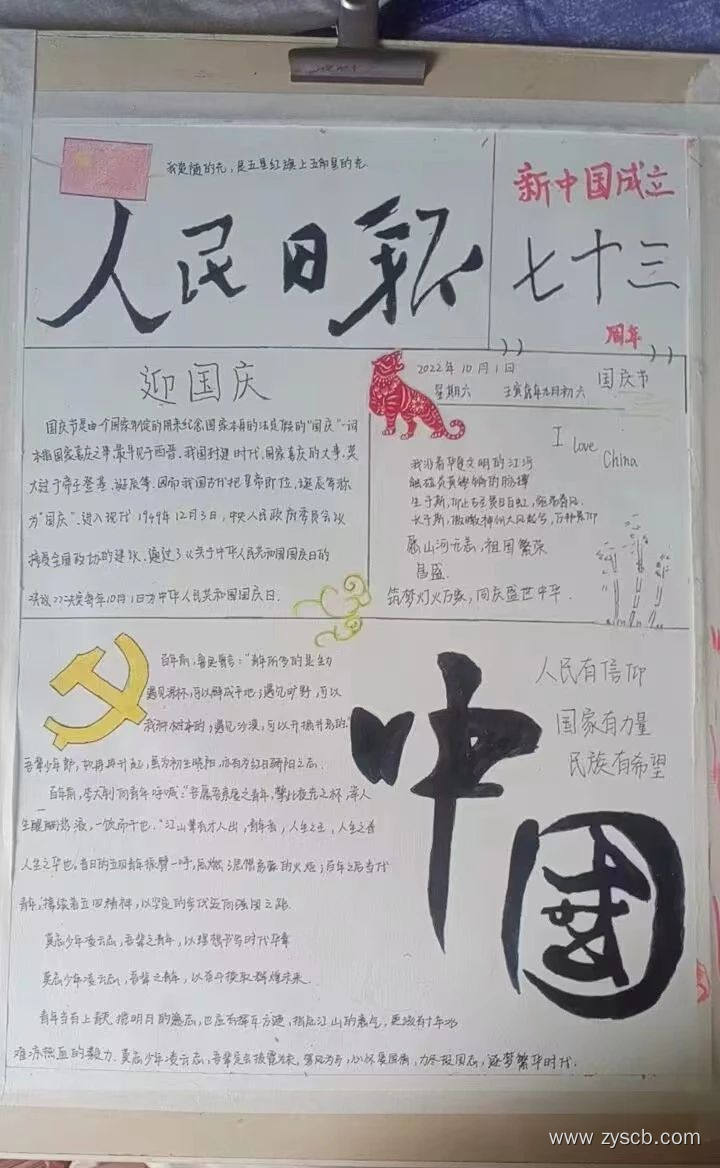 我是随的光，是五星红旗上五颗星的光
人民日报
新中国成立
七十三
周年
迎国庆
国庆节是由一个国家制定的用来纪念国家本身的法定假的"国庆"一词
本指国家喜庆之事，最早见于西晋。我国封建时代、国家喜庆的大事，莫
大过于帝王登基、诞辰等。因而我国古代把皇帝即位、诞辰等称
为"国庆"。进入现代，1949年12月3日，中央人民政府委员会议
接受全国政协的建议，通过了《关于中华人民共和国国庆日的
决议》，决定每年10月1日为中华人民共和国国庆日.
2022年10月1日
星期六
壬寅虎年九月初六
国庆节
I love
China
我沿着华夏文明的江河
触碰炎黄
生于斯，
长于斯，神州大风起兮，
愿山河无恙，祖国繁荣
昌盛.
筑梦灯火万家，同庆盛世中华
百年前，鲁迅有言："青年所多的是生力
遇见深林，可以辟成平地；遇见旷野，可以
栽种树木的；遇见沙漠，可以开掘井泉的.
吾辈少年郎，
百年前，李大钊向青年呼喊："吾愿吾亲爱之青年，擎此夜光之杯，举人
生醍醐浆液，一饮而干也."江山辈有才人出，青年者，人生之王，人生之春
人生之华也，昔日的五四青年振臂一呼，的火炬；百年之后当代
青年，接续着五四精神，以坚定的步伐迈向强国之路.
莫忘少年凌云志，吾辈之青年，以理想书写时代华章
莫忘少年凌云志，吾辈之青年，以奋斗换取辉煌未来.
青年当有上九天揽明月的意志，也应有挥斥方遒，指点江山的意气，更该有十年冰
难凉热血的毅力. 莫忘少年凌云志，吾辈定会披霞，心怀爱国情，力尽报国志，逐梦繁华时代.
人民有信仰
国家有力量
民族有希望
中
国
www.zyscb.com